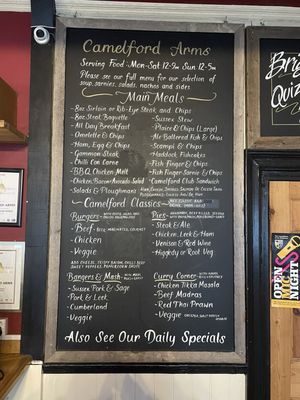 Camelford Arms
Serving Food: Mon-Sat 12-9pm Sun 12-5pm
Please see our full menu for our selection of
soup, sarnies, salads, nachos and sides
Main Meals
8oz Sirloin or Rib-Eye Steak and Chips
8oz Steak Baguette
All Day Breakfast
Omelette & Chips
Ham, Egg & Chips
Gammon Steak
Chilli Con Carne
BBQ Chicken Melt
Chicken/Bacon/Avocado Salad
Salads & Ploughmans
Sussex Stew
Plaice & Chips (Large)
Ale Battered Fish & Chips
Scampi & Chips
Haddock Fishcakes
Fish Finger & Chips
Fish Finger Sarnie & Chips
Camelford Club Sandwich
Ham, Cheese, Sausage, Salmon or
Camelford Classics
Burgers-
-Beef
-Chicken
-Veggie
Add Cheese, Crispy Bacon, Chilli Beef
Sweet Peppers,
Bangers & Mash-
-Sussex Pork & Sage
-Pork & Leek
-Cumberland
-Veggie
Pies-
-Steak & Ale
-Chicken, Leek & Ham
-Venison & Red Wine
-Higgedy or Root Veg
Curry Corner-
-Chicken Tikka Masala
-Beef Madras
-Red Thai Prawn
-Veggie
Also See Our Daily Specials
Quiz
OPEN